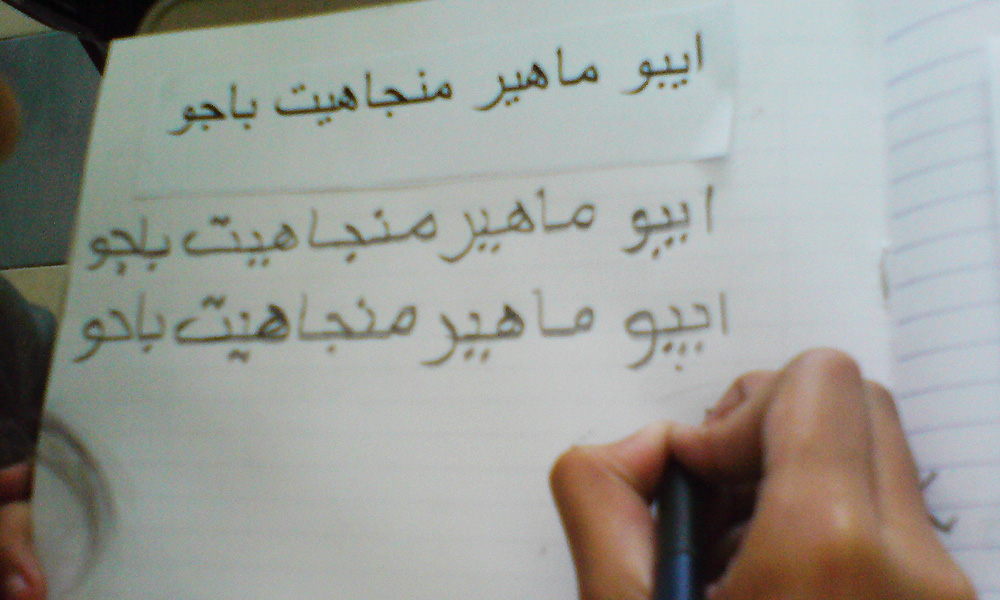 ايبو ماهير منجاهيت باجو
ايبو ماهير منجاهيت باجو
ايبو ماهير منجاهيت باجو